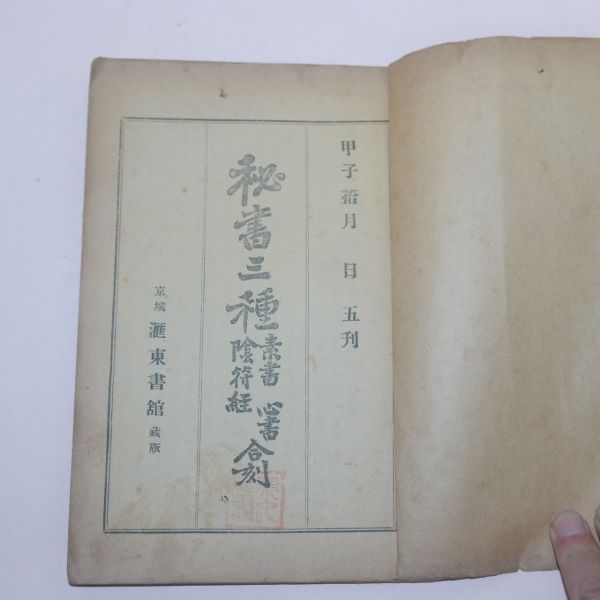 甲子拾月 日 五刊
秘書三種
素書
陰符經
心書
合刻
京城
滙東書舘
蔵版